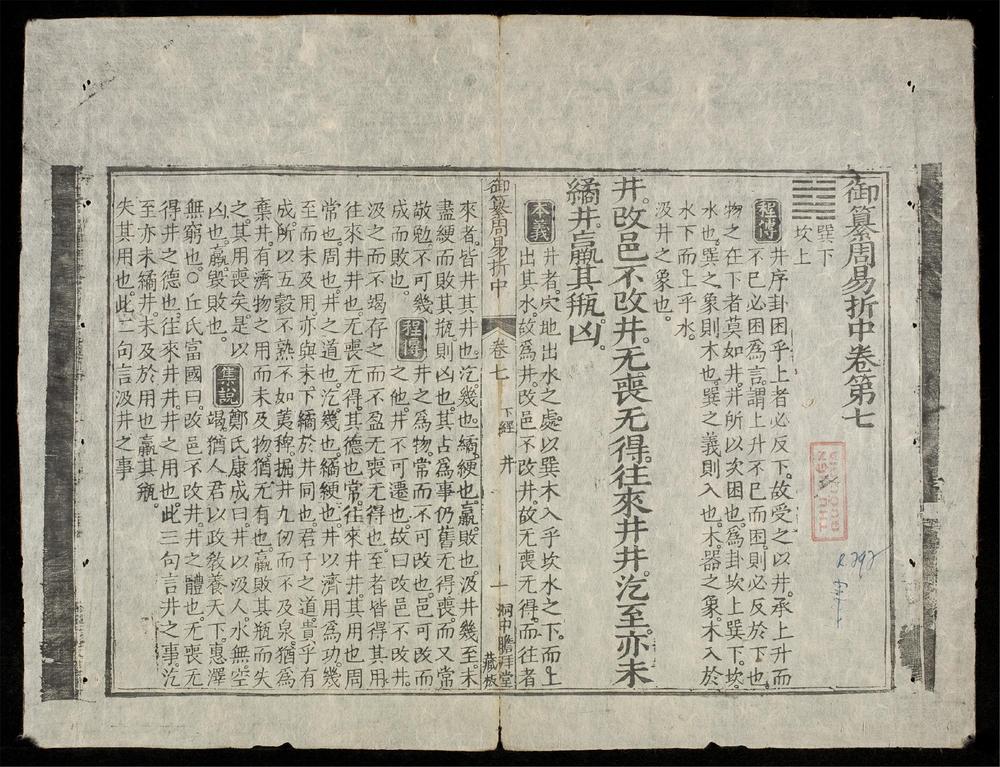 御纂周易折中卷第七
巽下
坎上
程傳 井序卦困乎上者必反下故受之以井承上升而
不已必困爲言謂上升不已而困則必反於下也
物之在下者莫如井井所以次困也爲卦坎上巽下坎
水也巽之象則木也巽之義則入也木器之象木入於
水下而上乎水
汲井之象也
井。改邑不改井。无喪无得。往來井井。汔至。亦未
繘井。羸其瓶。凶。
本義 井者。穴地出水之處。以巽木入乎坎水之下。而上
出其水。故爲井。改邑不改井。故无喪无得。而往者
御纂周易折中 卷七 下經 井 一 洞中瞻拜堂藏板
來者。皆井其井也。汔。幾也。繘。綆也。羸。敗也。汲井幾至。未
盡綆而敗其瓶。則凶也。其占爲事仍舊无得喪。而又當
敬勉。不可幾
成而敗也。 程傳 井之爲物。常而不可改也。邑可改而
之他。井不可遷也。故曰改邑不改井。
汲之而不竭。存之而不盈。无喪无得也。至者皆得其用。
往來井井也。无喪无得。其德也常。往來井井。其用也周
常也。周也。井之道也。汔。幾也。繘。綆也。井以濟用爲功。幾
至而未及用。亦與未下繘於井同也。君子之道。貴乎有
成。所以五穀不熟。不如荑稗。掘井九仞。而不及泉。猶爲
棄井。有濟物之用。而未及物。猶无有也。羸敗其瓶而失
之。其用喪矣。是以
凶也。羸。毀敗也。 集說 鄭氏康成曰。井以汲人。水無空
竭。猶人君以政敎養天下。惠澤
無窮也。○丘氏富國曰。改邑不改井。井之體也。无喪无
得。井之德也。往來井井。井之用也。此三句言井之事。汔
至亦未繘井。未及於用也。羸其瓶。
失其用也。此二句言汲井之事
THU VIEN
QUOC GIA
R.292